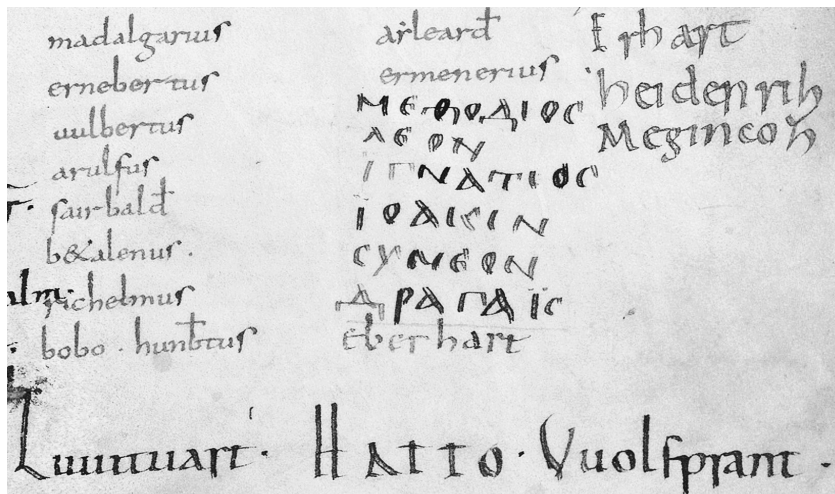 madalgarius
ernebertus
uulbertus
arulfus
sairbald
b&alenus.
richelmus
bobo . hunbtus
arleard
ermenerius
ΜΕΘΟΔΙΟC
ΛΕΟΝ
ΙΓΝΑΤΙΟC
ΪΟΑΚΙΝ
CΥΜΕΟΝ
ΔΡΑΓΑΪC
Eberhart
Erhart
heidenrih
Megincoz
Liuutuuart. HATTO. Vuolfprant.